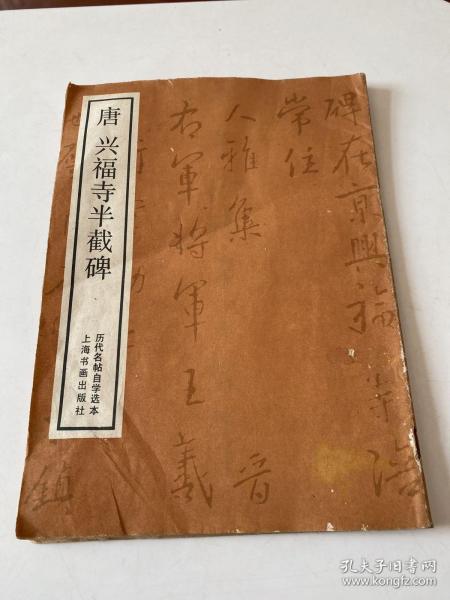 唐 兴福寺半截碑
历代名帖自学选本
上海书画出版社
碑在京兴福寺
常住
人雅集
晋
右军将军王羲
镇
孔夫子旧书网
www.kongfz.com